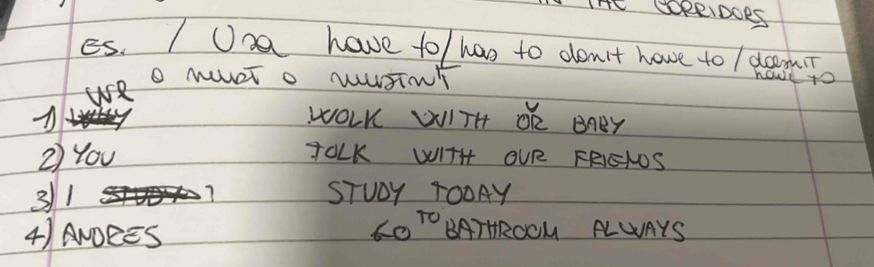 IN THE CORRIDORS
ES. / Usa have to/has to don't have to / doesn't have to
o must o mustn't
1) We WOLK WITH OUR BABY
2) YOU TOLK WITH OUR FRIENDS
3) I STUDY TODAY
4) ANDRES GO TO BATHROOM ALWAYS